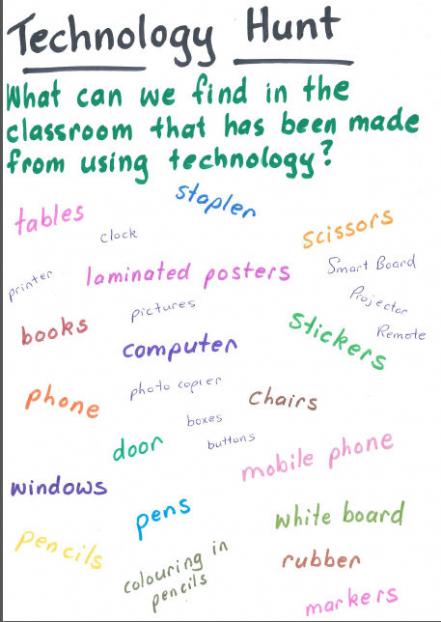 Technology Hunt
What can we find in the
classroom that has been made
from using technology?
stapler
tables
clock
scissors
printer
laminated posters
Smart Board
pictures
Projector
books
Remote
computer
stickers
photo copier
phone
chairs
boxes
buttons
door
mobile phone
windows
pens
white board
pencils
colouring in
pencils
rubber
markers